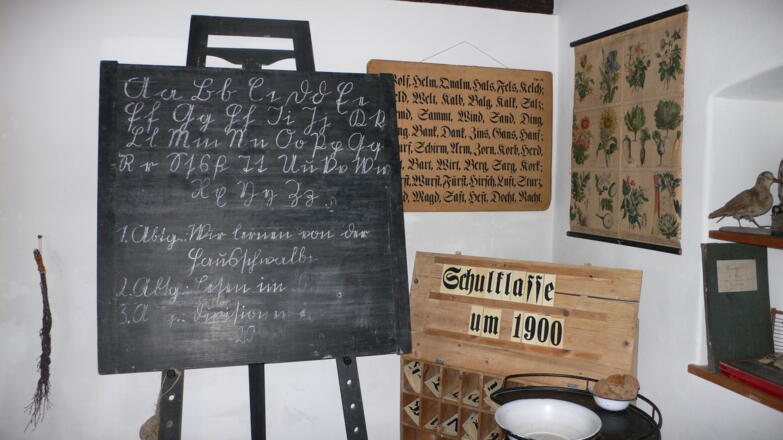 Aa Bb Cc Dd Ee
Ff Gg Hh Ii Jj Kk
Ll Mm Nn Oo Pp Qq
Rr Sſsß Tt Uu Vv Ww
Xx Yy Zz
1. Abtg.: Wir lernen von der
Hausschwalbe
2. Abtg.: Lesen im
3. A
Division
Wolf, Helm, Qualm, Hals, Fels, Kelch;
Welt, Kalb, Balg, Kalk, Salz;
Samt, Wind, Sand, Ding,
Bank, Dank, Zins, Gans, Hanf;
Schirm, Arm, Zorn, Korb, Herd,
Bart, Wirt, Berg, Sarg, Kork;
Wurst, Fürst, Hirsch, Luft, Sturz,
Magd, Saft, Heft, Docht, Nacht.
Schulklaſſe
um 1900